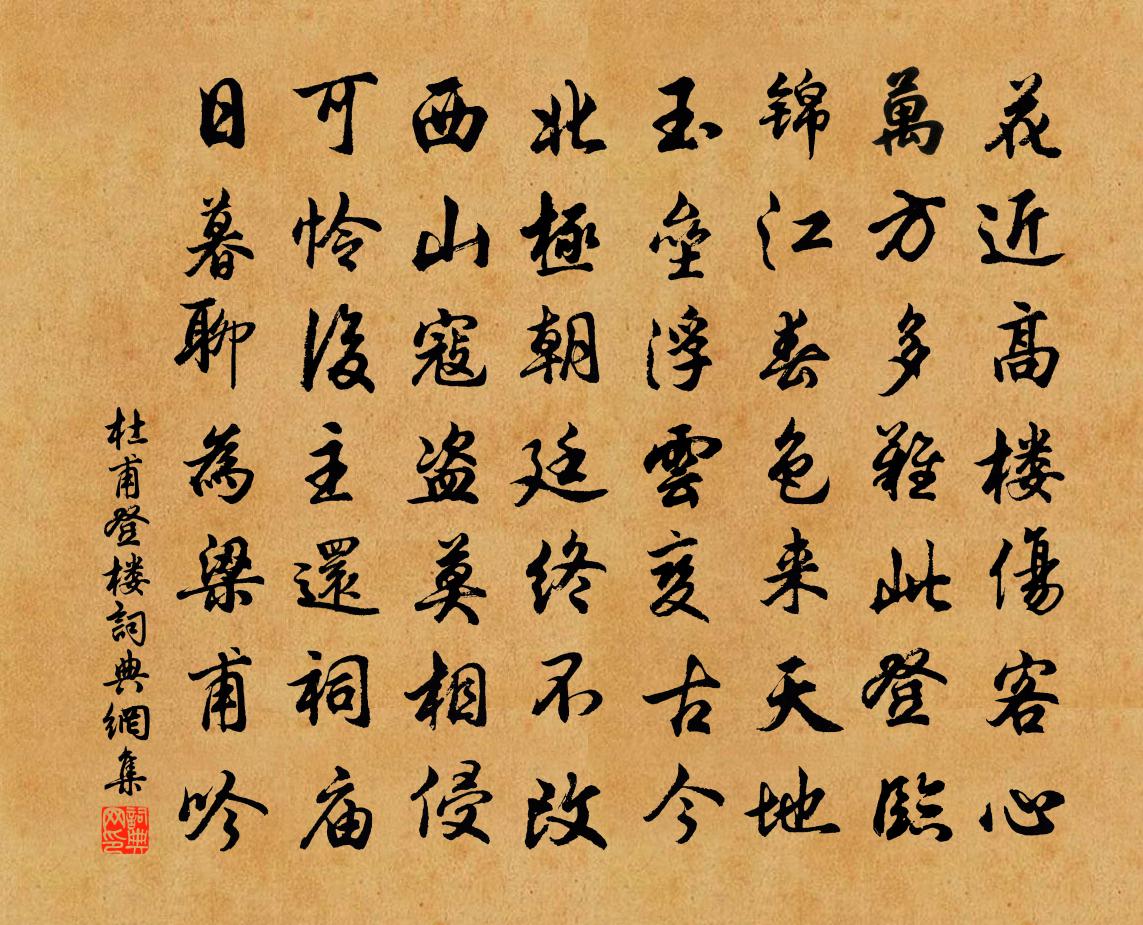 花近高楼傷客心
萬方多難此登臨
锦江春色来天地
玉壘浮雲變古今
北極朝廷終不改
西山寇盗莫相侵
可怜後主還祠庙
日暮聊為梁甫吟
杜甫登楼詞典網集
詞典网印